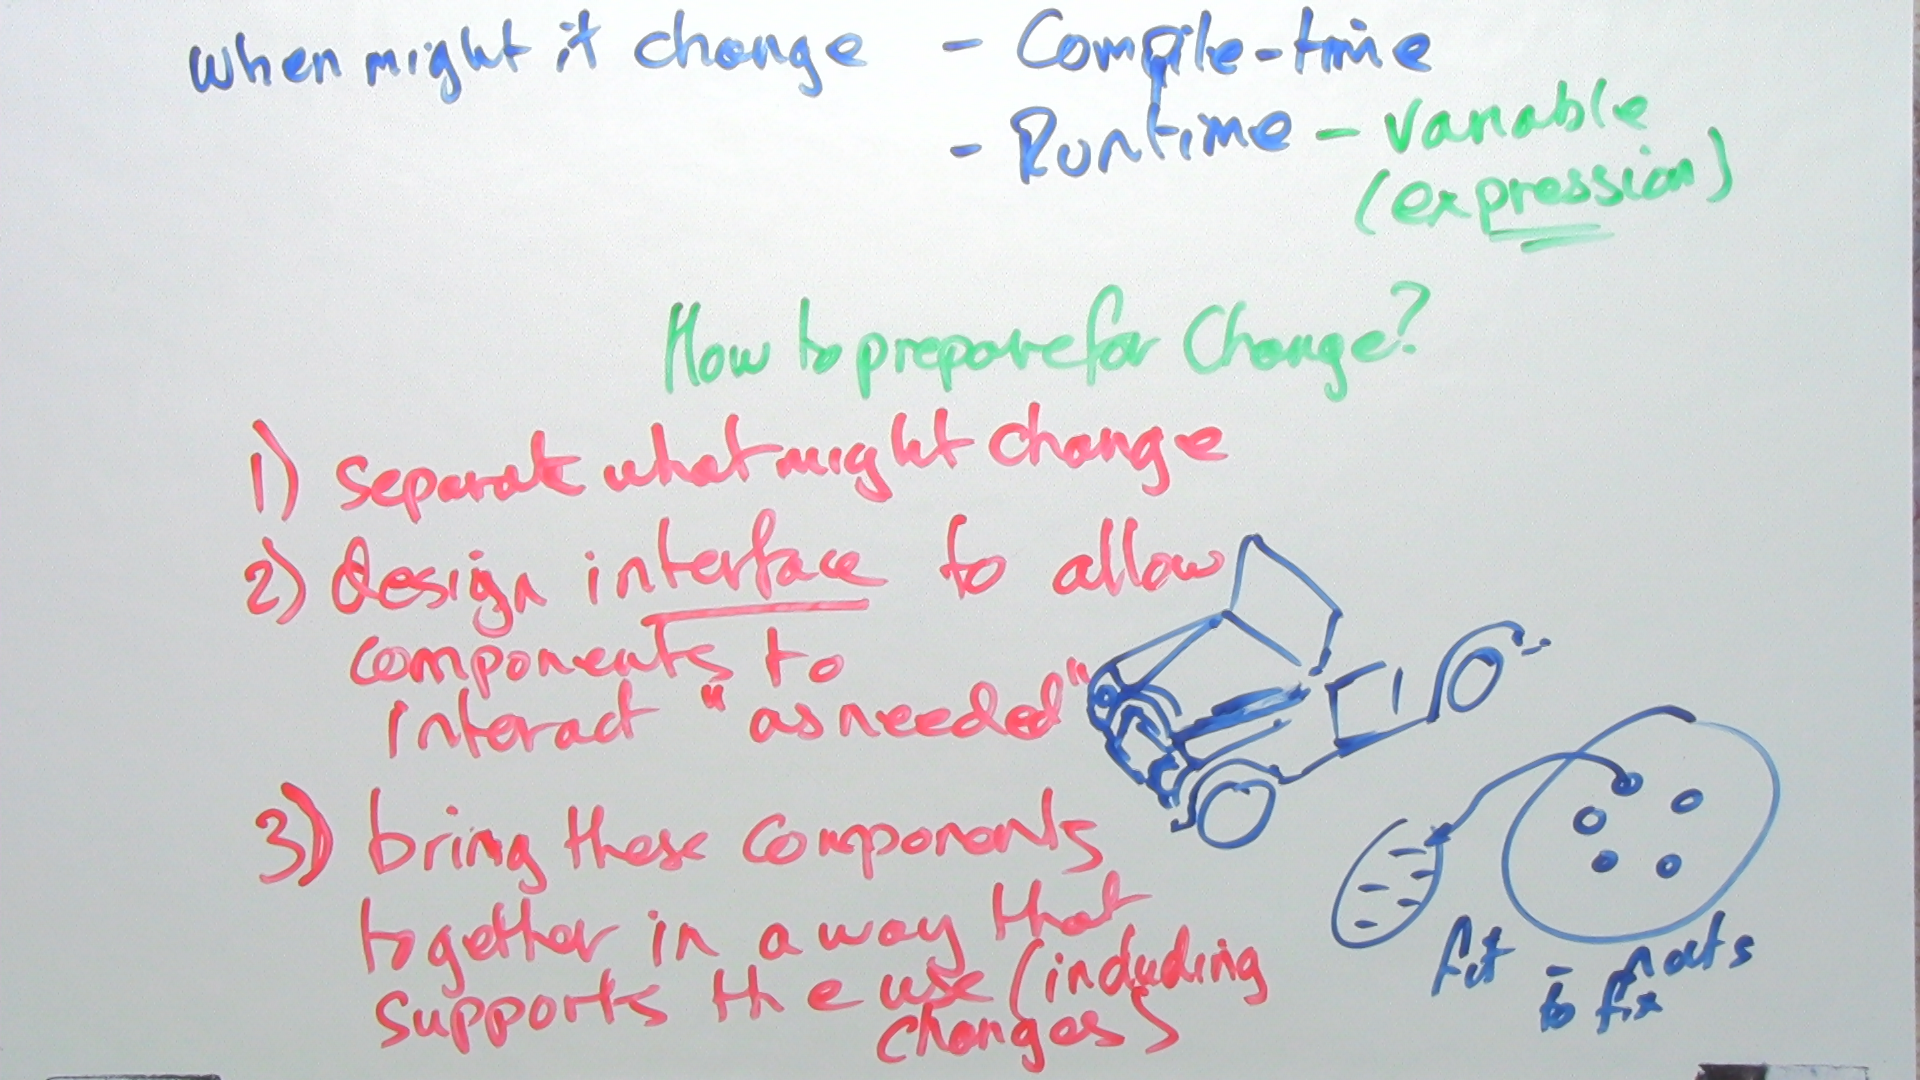 when might it change - Compile-time
- Runtime - variable
(expression)
How to prepare for Change?
1) separate what might change
2) design interface to allow
components to
interact "as needed"
3) bring these components
together in a way that
supports the use (including
changes)
fit
to fix